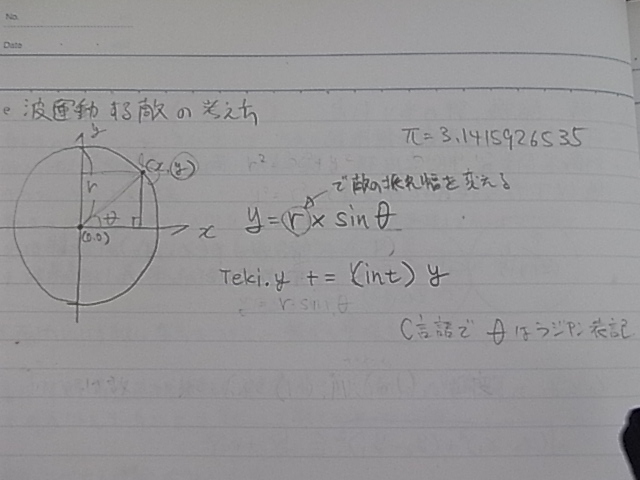 No.
Date
波運動する敵の考え方
π=3.1415926535
y
(x,y)
r
θ
(0.0)
x
で敵の振れ幅を変える
y=r×sinθ
Teki.y += (int) y
C言語でθはラジアン表記